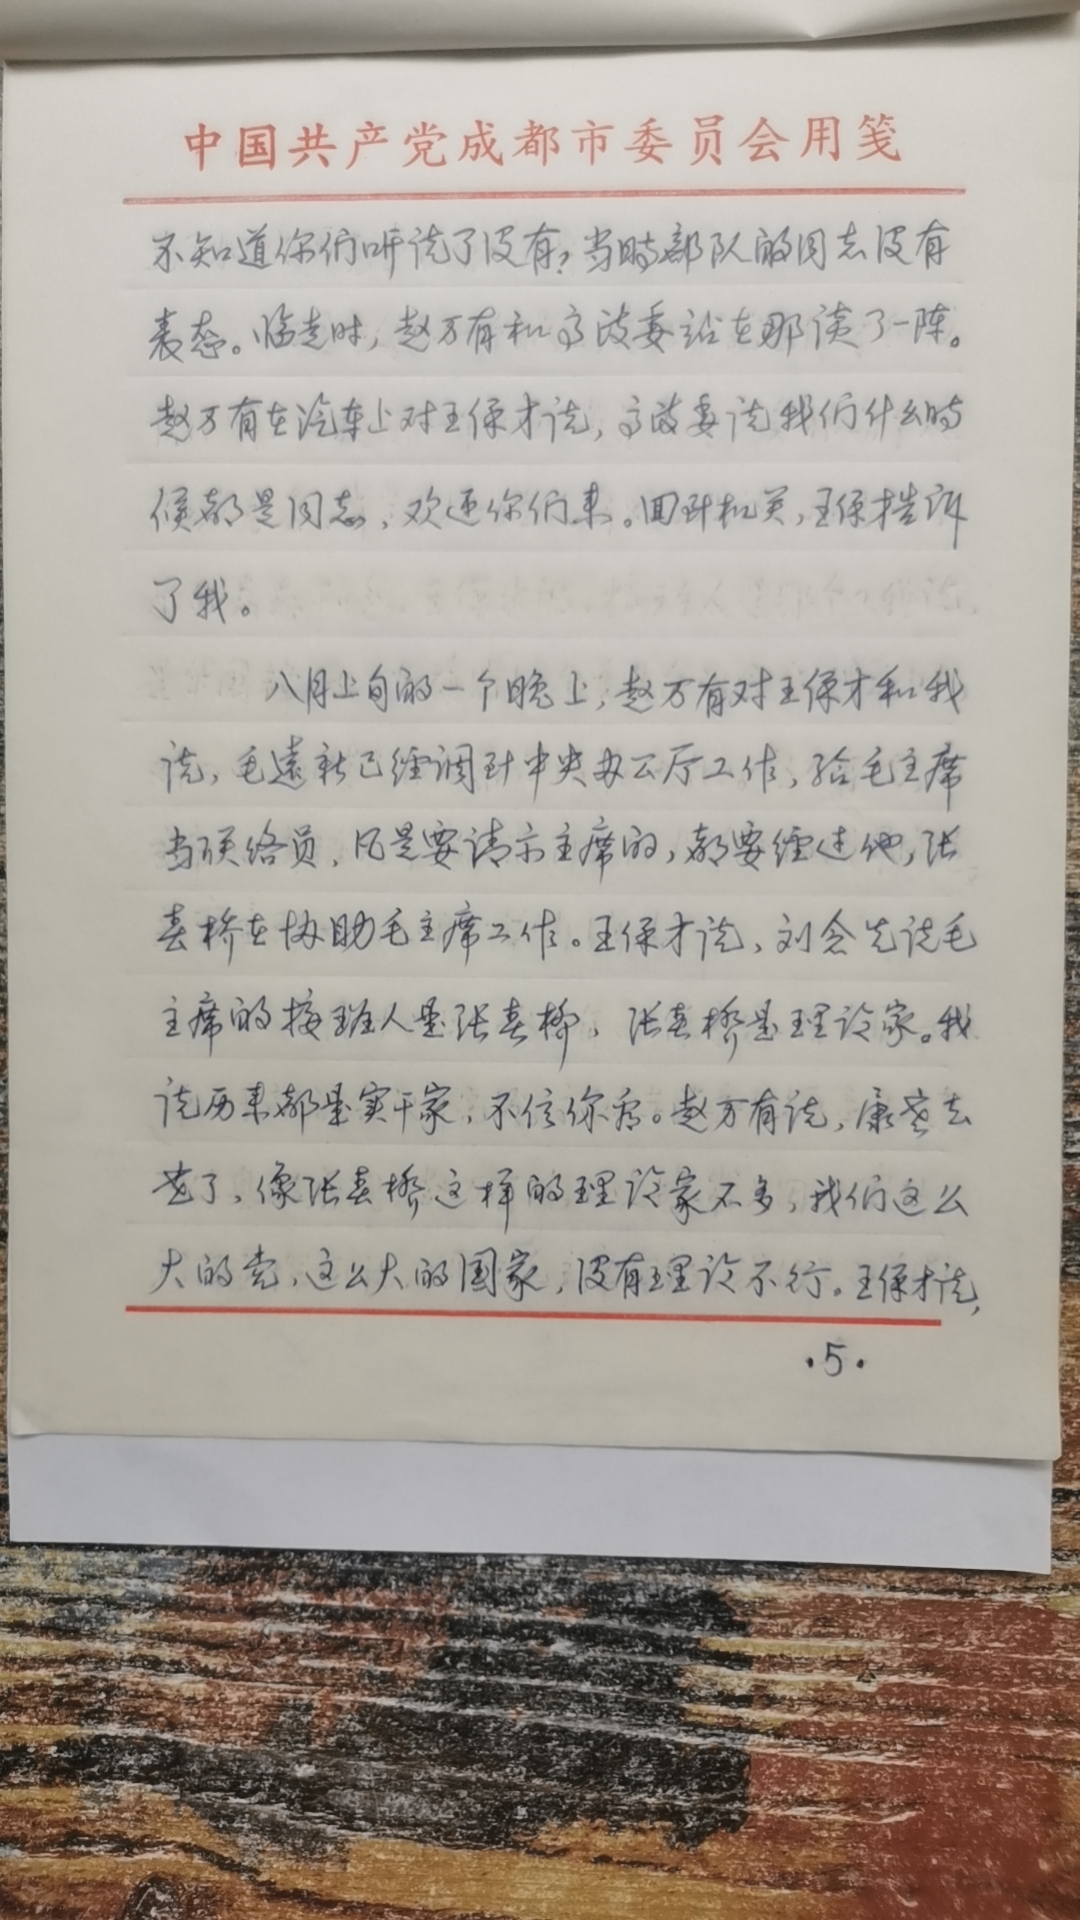 中国共产党成都市委员会用笺
不知道你们听说了没有？当时部队的同志没有
表态。临走时，赵万有和高政委站在那谈了一阵。
赵万有在汽车上对王保才说，高政委说我们什么时
候都是同志，欢迎你们来。回到机关，王保才告诉
了我。
八月上旬的一个晚上，赵万有对王保才和我
说，毛远新已经调到中央办公厅工作，给毛主席
当联络员，凡是要请示主席的，都要经过他，张
春桥在协助毛主席工作。王保才说，刘念先说毛
主席的接班人是张春桥，张春桥是理论家。我
说历来都是实干家，不信你看。赵万有说，康老去
世了，像张春桥这样的理论家不多，我们这么
大的党，这么大的国家，没有理论不行。王保才说，
·5·